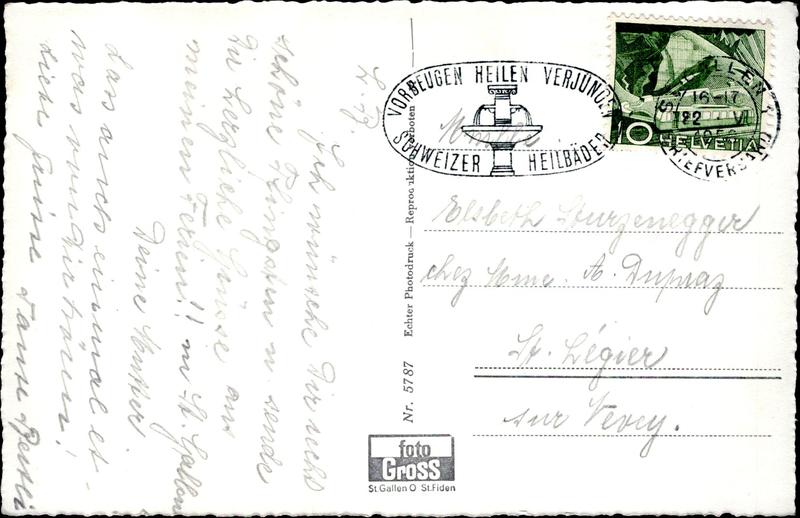 L. Bg.
Ich wünsche Dir recht
schöne Pfingsten u. sende
Dir herzliche Grüsse aus
meinen Ferien!! in St. Gallen
Deine Mutter
Lass auch einmal et-
was von Dir hören!
Liebe Grüsse Tante Bertli
Nr. 5787 Echter Photodruck — Reproduktion verboten
foto
Gross
St.Gallen O St.Fiden
VORBEUGEN HEILEN VERJÜNGEN
SCHWEIZER HEILBÄDER
16-17
22 VI
BRIEFVERSAND
10 HELVETIA
Elsbeth Sturzenegger
chez Mme. A. Dupraz
St. Légier
sur Vevey.